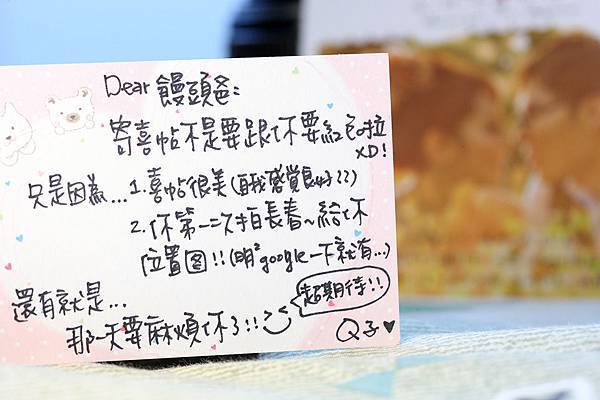 Dear 饅頭爸:
寄喜帖不是要跟你要紅包啦
XD!
只是因為...1.喜帖很美(自我感覺良好??)
2.你第一次拍長春~給你
位置圖!!(明²google一下就有...)
還有就是...
那一天要麻煩你了!!
超期待!!
Q子♥